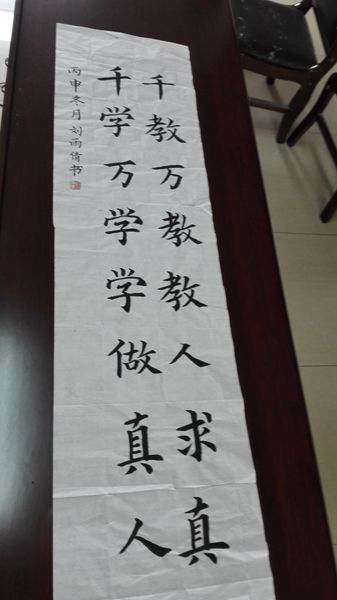 千教万教教人求真
千学万学学做真人
丙申冬月刘雨倩书